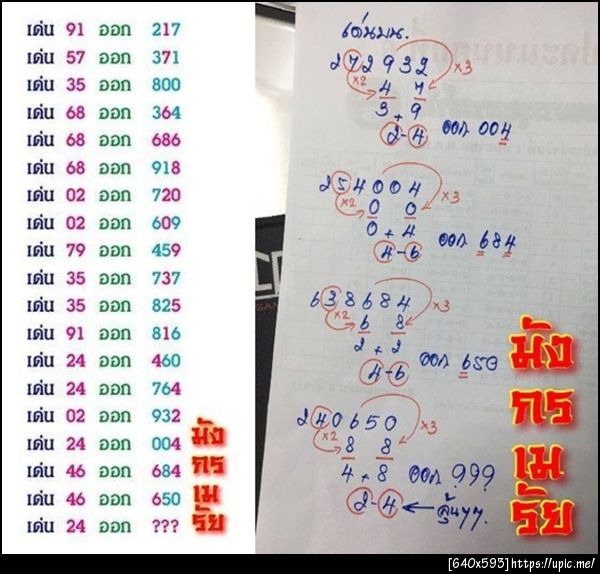 เด่น 91 ออก 217
เด่น 57 ออก 371
เด่น 35 ออก 800
เด่น 68 ออก 364
เด่น 68 ออก 686
เด่น 68 ออก 918
เด่น 02 ออก 720
เด่น 02 ออก 609
เด่น 79 ออก 459
เด่น 35 ออก 737
เด่น 35 ออก 825
เด่น 91 ออก 816
เด่น 24 ออก 460
เด่น 24 ออก 764
เด่น 02 ออก 932
เด่น 24 ออก 004
เด่น 46 ออก 684
เด่น 46 ออก 650
เด่น 24 ออก ???
มัง
กร
เม
รัย
เด่นบน.
272932
×2 ×3
4 7
3 + 9
2-4 ออก 004
254004
×2 ×3
0 0
0 + 4
4-6 ออก 684
638684
×2 ×3
6 8
2 + 2
4-6 ออก 650
240650
×2 ×3
8 8
4 + 8 ออก ???
2-4 ← ลุ้นๆๆ.
มัง
กร
เม
รัย
[640x593]https://upic.me/